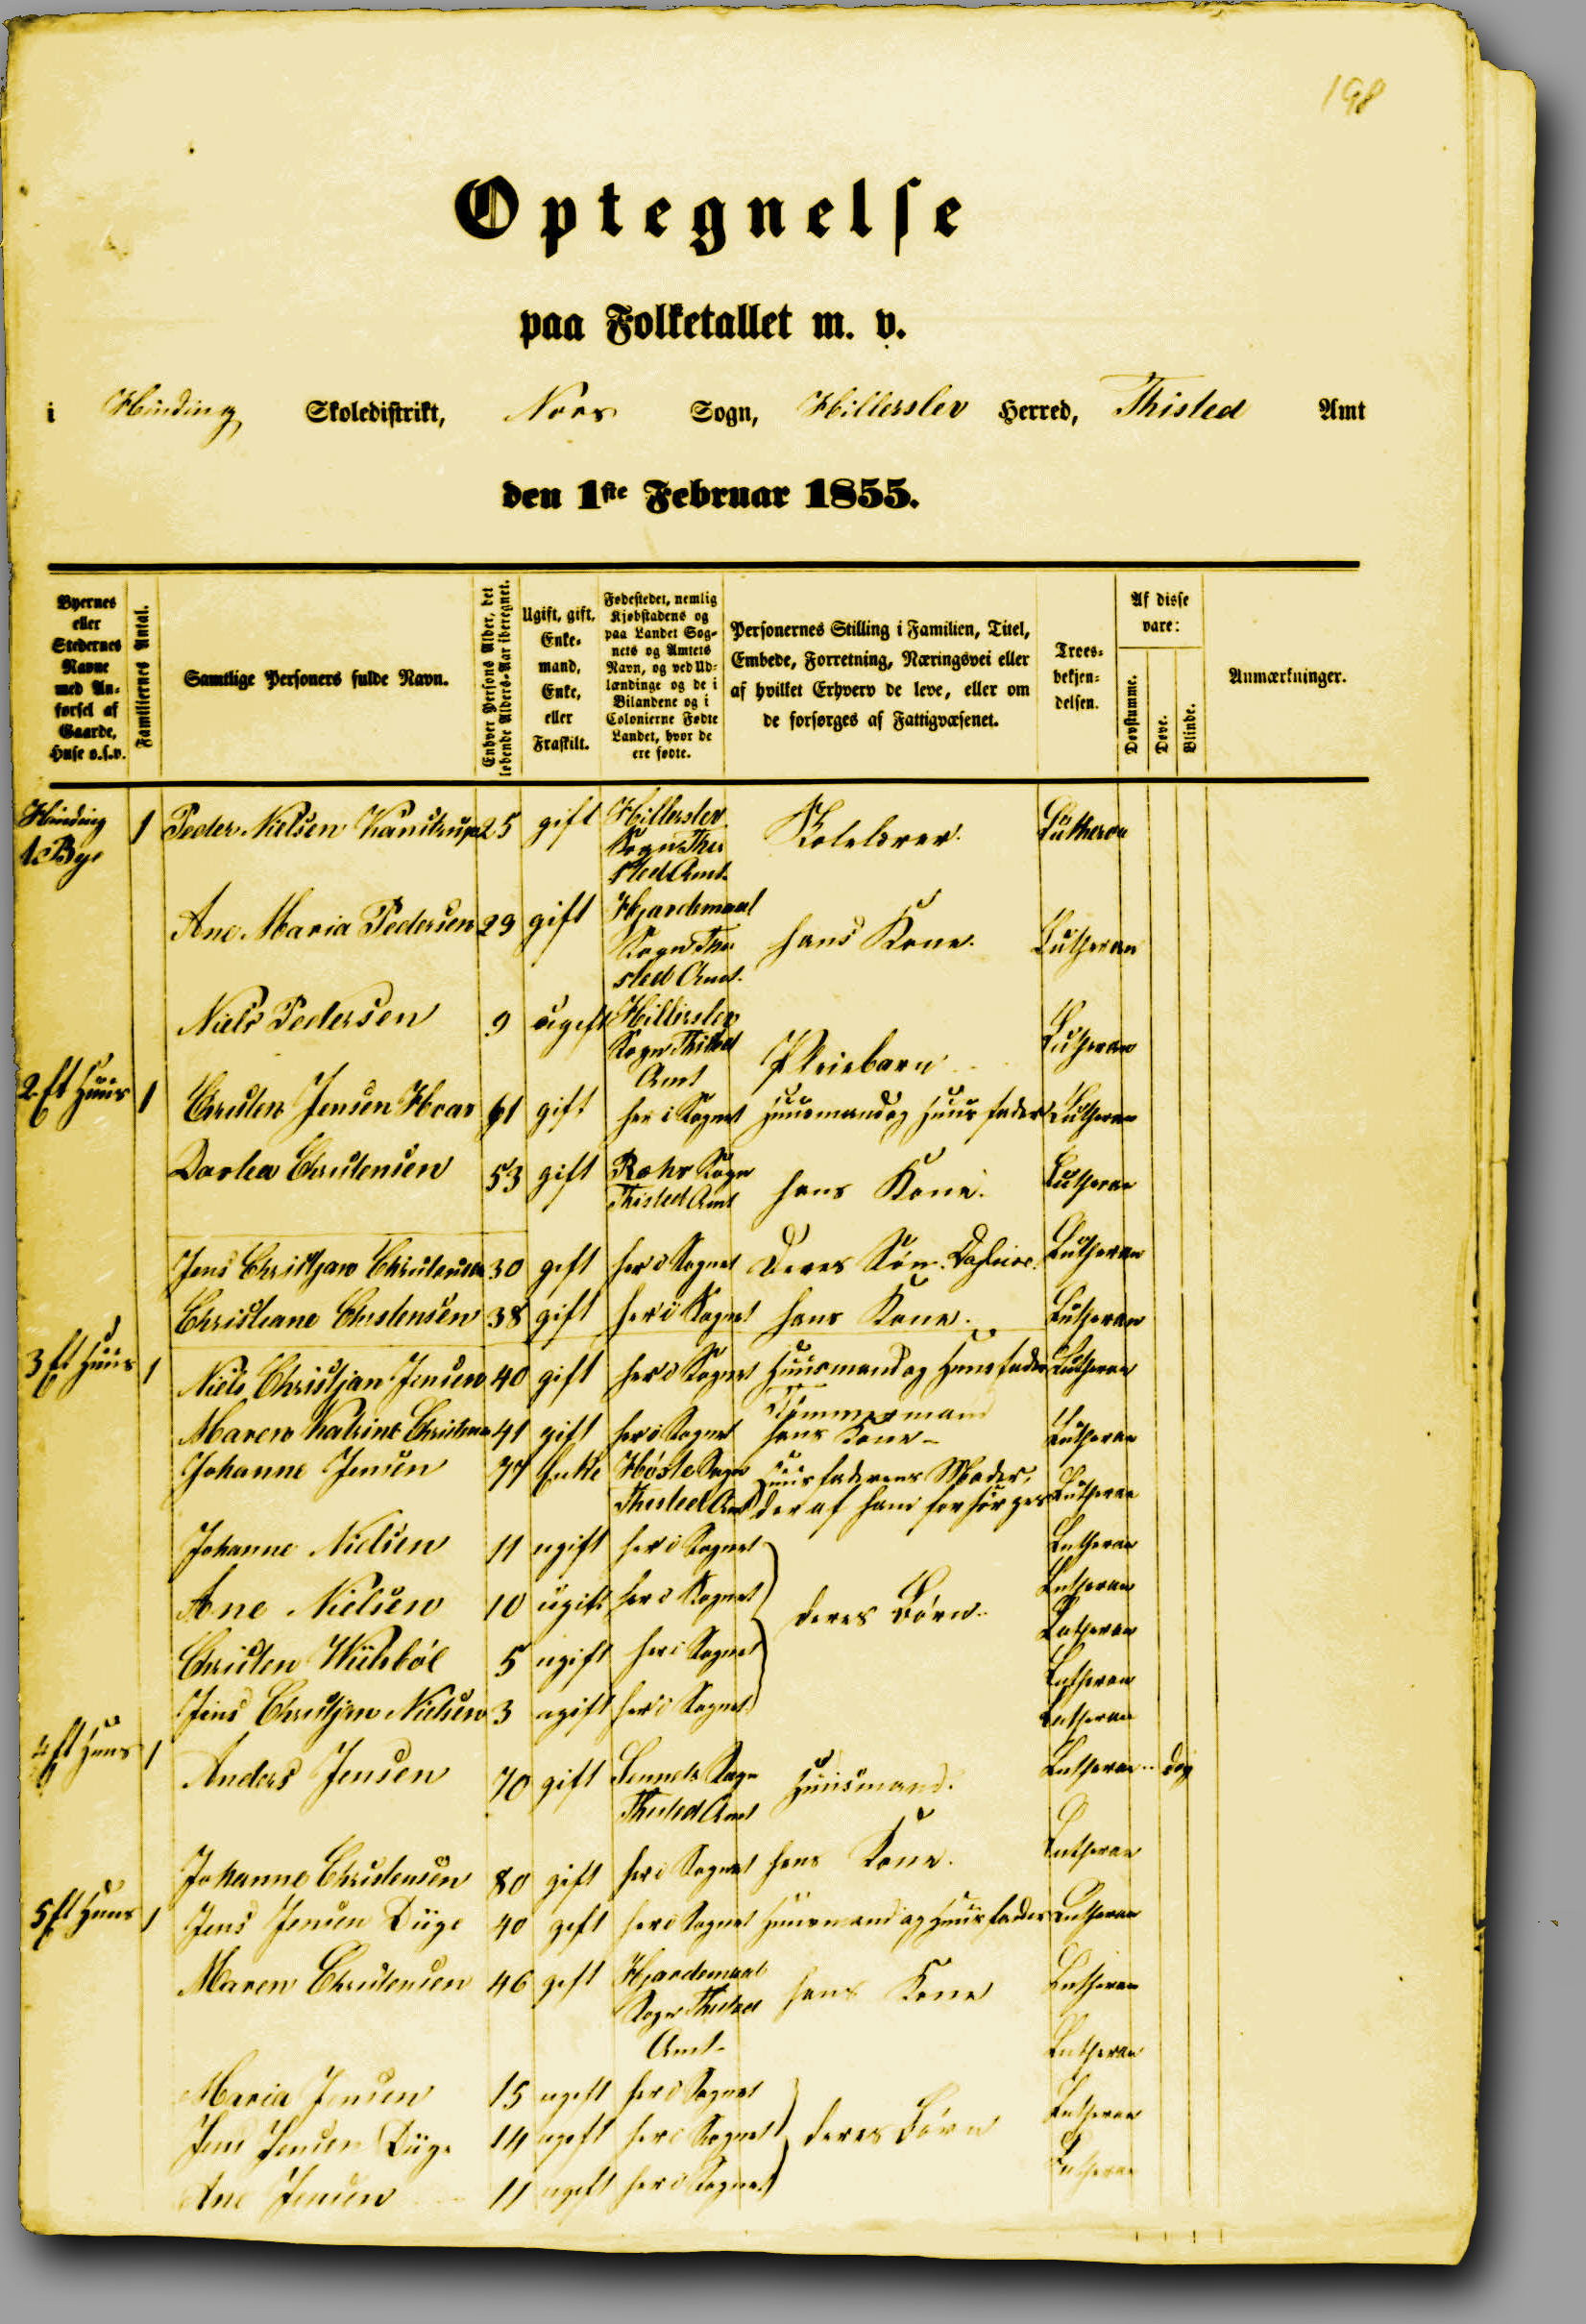 198
Optegnelse
paa Folketallet m. v.
i Hinding Skoledistrikt, Nors Sogn, Hillerslev Herred, Thisted Amt
den 1ste Februar 1855.
Byernes eller Stedernes Navne med Anførsel af Gaarde, Huse o.s.v.
Familiernes Antal.
Samtlige Personers fulde Navn.
Enhver Persons Alder, det løbende Alders-Aar iberegnet.
Ugift, gift, Enkemand, Enke, eller Fraskilt.
Fødestedet, nemlig Kjøbstadens og paa Landet Sognets og Amtets Navn, og ved Udlændinge og de i Bilandene og i Colonierne Fødte Landet, hvor de ere fødte.
Personernes Stilling i Familien, Titel, Embede, Forretning, Næringsvei eller af hvilket Erhverv de leve, eller om de forsørges af Fattigvæsenet.
Troesbekjendelsen.
Af disse vare:
Døvstumme.
Døve.
Blinde.
Anmærkninger.
Hinding Bye 1 Peder Nielsen Kanstrup 25 gift Hillerslev Sogn Thisted Amt Lutheran
Ane Maria Pedersen 29 gift Hjardemaal Sogn Thisted Amt hans Kone Lutheran
Niels Pedersen 9 ugift Hillerslev Sogn Thisted Amt Pleiebarn Lutheran
2 Huus 1 Christen Jensen 61 gift her i Sognet Huusmand og Huusfader Lutheran
Dorthea Christensen 53 gift Sogn Thisted Amt hans Kone Lutheran
Jens Christjan Christensen 30 gift her i Sognet Deres Søn Lutheran
Christiane Christensen 38 gift her i Sognet hans Kone Lutheran
3 Huus 1 Niels Christjan Jensen 40 gift her i Sognet Huusmand og Huusfader Lutheran
Tømmermand
Maren Katrine Christensen 41 gift her i Sognet hans Kone Lutheran
Johanne Jensen 77 Enke Sogn Thisted Amt Huusfaderens Moder, der af ham forsørges Lutheran
Johanne Nielsen 11 ugift her i Sognet Lutheran
Ane Nielsen 10 ugift her i Sognet deres Børn Lutheran
Christen 5 ugift her i Sognet Lutheran
Jens Christjan Nielsen 3 ugift her i Sognet Lutheran
Lutheran
4 Huus 1 Anders Jensen 70 gift Sennels Sogn Thisted Amt Huusmand Lutheran døv
Johanne Christensen 80 gift her i Sognet hans Kone Lutheran
5 Huus 1 Jens Jensen Düge 40 gift her i Sognet Huusmand og Huusfader Lutheran
Maren Christensen 46 gift Hjardemaal Sogn Thisted Amt hans Kone Lutheran
Maria Jensen 15 ugift her i Sognet Lutheran
Jens Jensen Düge 14 ugift her i Sognet deres Børn Lutheran
Ane Jensen 11 ugift her i Sognet Lutheran